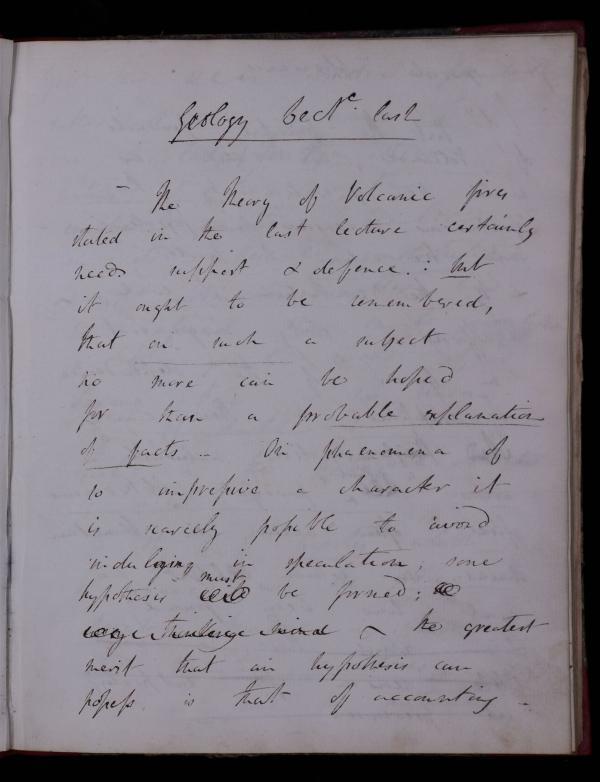 Geology Lect^e. last
– The Theory of Volcanic fires
stated in the last lecture certainly
needs support & defence. : but
it ought to be remembered,
that on such a subject
no more can be hoped
for than a probable explanation
of facts – On phaenomena of
so impressive a character it
is scarcely possible to avoid
indulging in speculation; some
hypothesis must be formed;
thinking mind & the greatest
merit that an hypothesis can
possess is that of accounting –